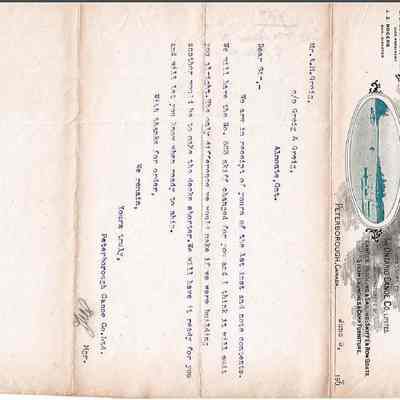 J. Z. ROGERS
THE ONTARIO CANOE CO. LIMITED
PETERBOROUGH, CANADA.
June 3,
Mr. R.H. Greig,
c/o Greig & Greig,
Almonte, Ont.
Dear Sir,-
We are in receipt of yours of the 1st inst and note contents.
We will have the No. skiff changed for you and I think it will suit
you alright. The only difference we would make if we were building
another would be to make the decks shorter. We will have it ready for you
and will let you know when ready to ship.
With thanks for order,
We remain,
Yours truly,
Peterborough Canoe Co. Ltd.
Mgr.